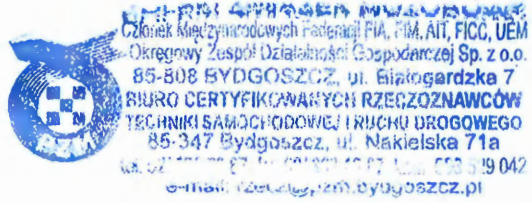 Członek Międzynarodowych Federacji FIA, FIM, AIT, FICC, UEM
Okręgowy Zespół Działalności Gospodarczej Sp. z o.o.
85-808 BYDGOSZCZ, ul. Białogardzka 7
BIURO CERTYFIKOWANYCH RZECZOZNAWCÓW
TECHNIKI SAMOCHODOWEJ I RUCHU DROGOWEGO
85-347 Bydgoszcz, ul. Nakielska 71a
042
e-mail: